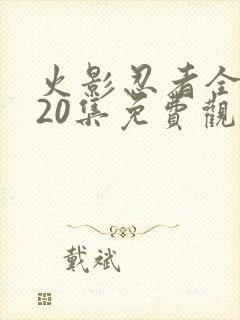 火影忍者全
20集免費觀
戴斌